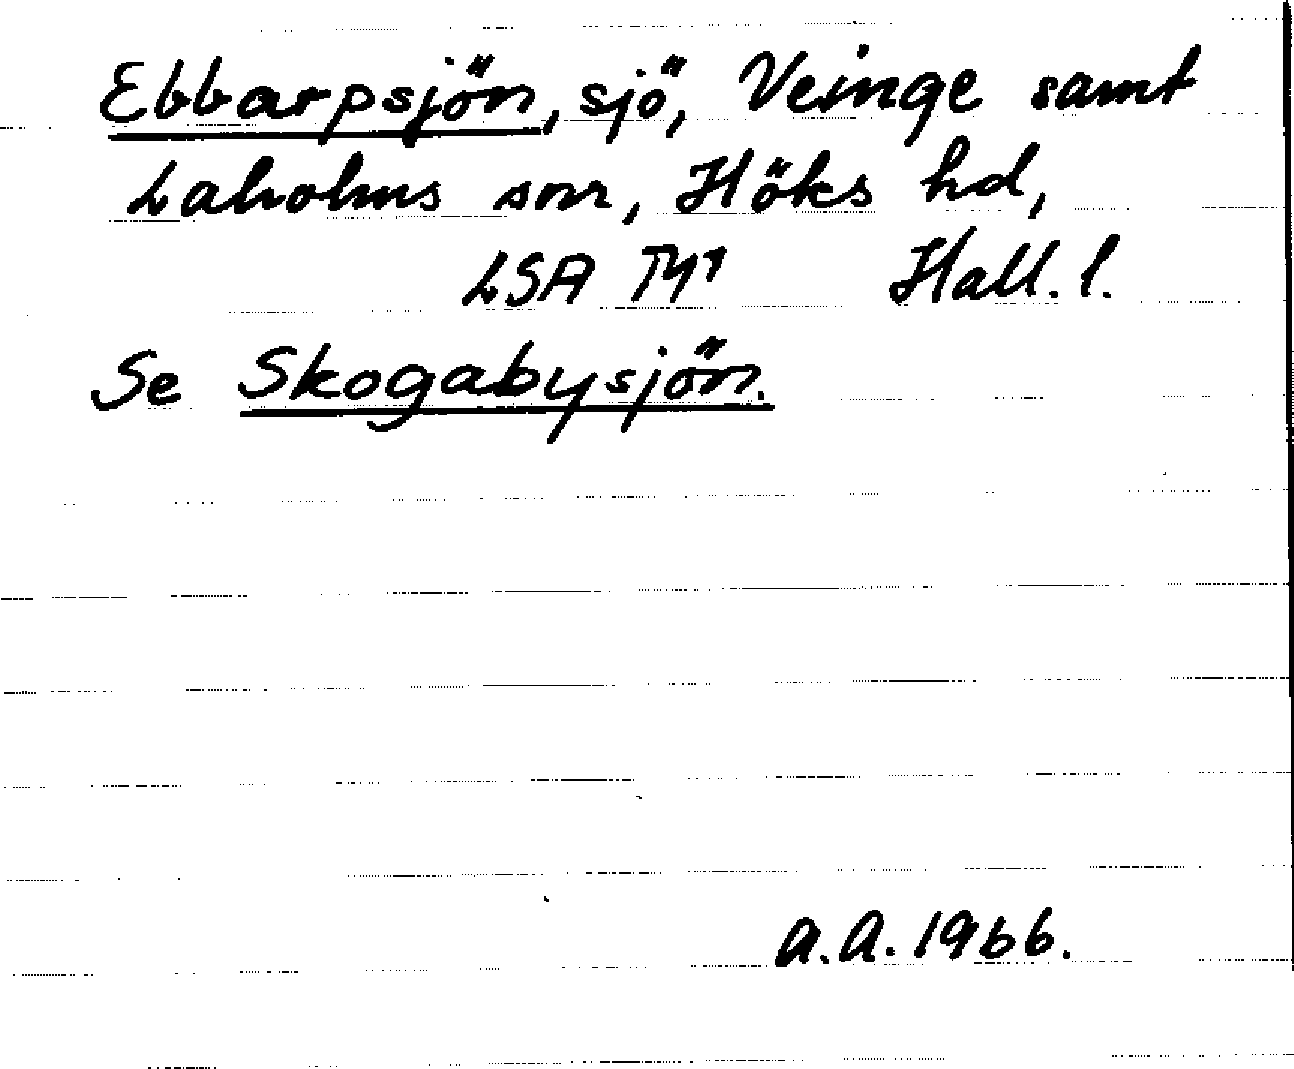 Ebbarpsjön, sjö, Veinge samt
Laholms snr, Höks hd,
LSA Hall. l.
Se Skogabysjön.
A.A. 1966.